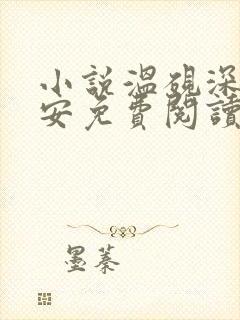 小說溫硯深
安免費閱讀
墨蓁